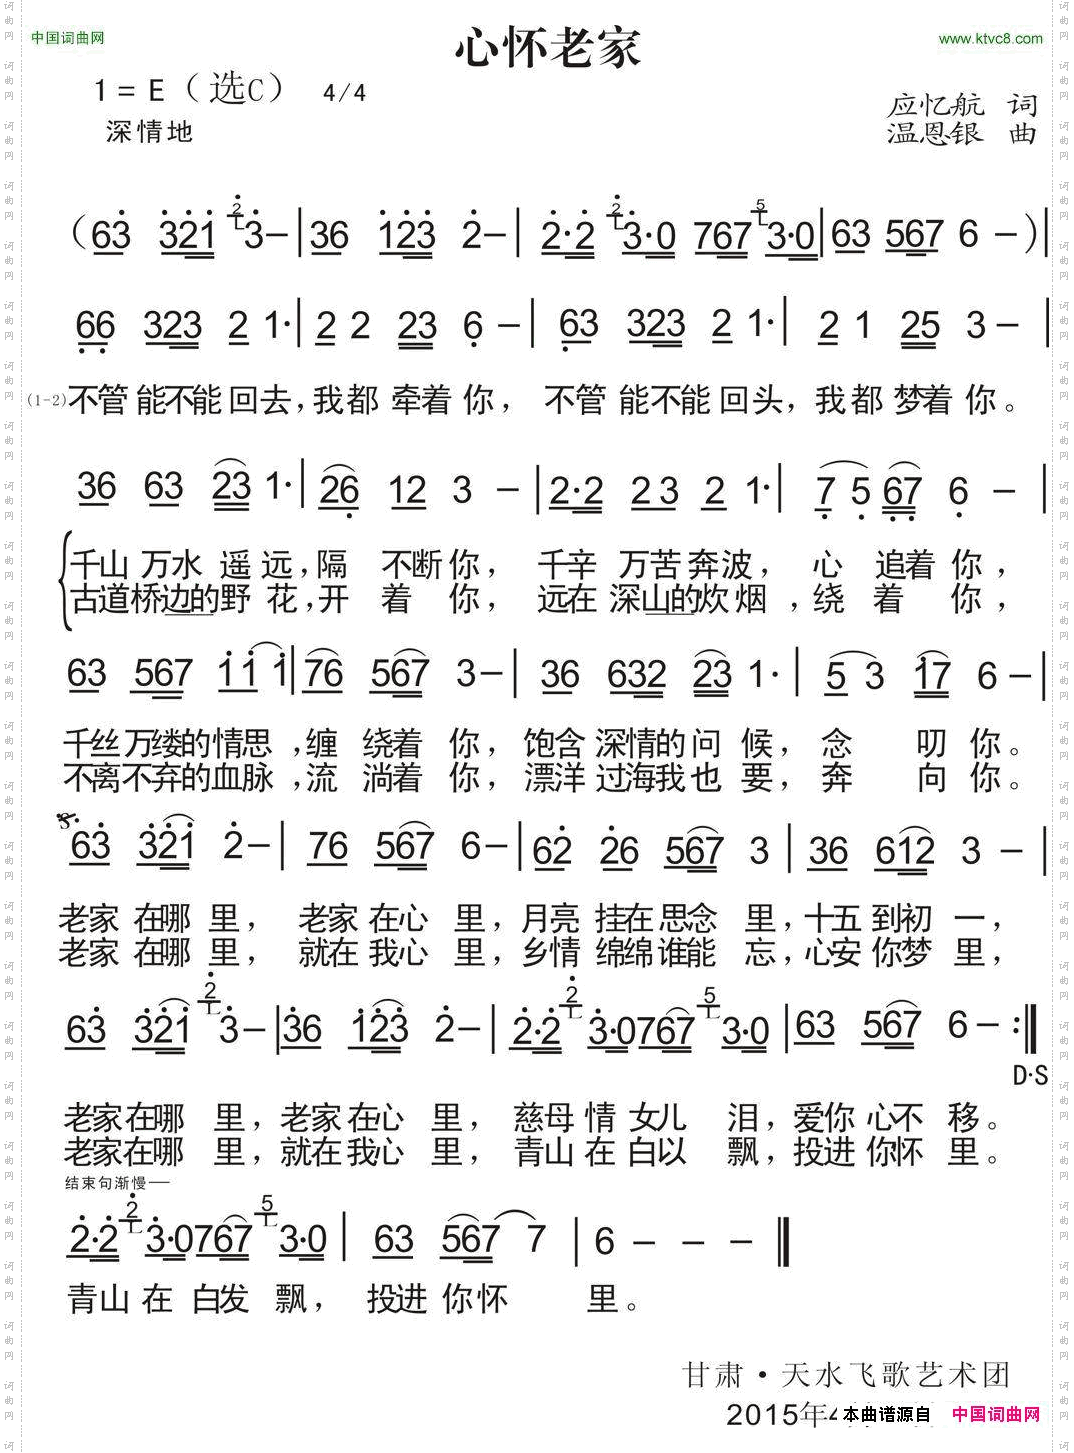 中国词曲网
心怀老家
www.ktvc8.com
1 = E（选C） 4/4
深情地
应忆航 词
温恩银 曲
（63 321 2 3－|36 123 2－|2·2 2 3·0 767 5 3·0|63 567 6－）|
66 323 2 1·|2 2 23 6－|63 323 2 1·|2 1 25 3－|
(1-2)不管 能不能 回去，我都 牵着 你， 不管 能不能 回头，我都 梦着 你。
36 63 23 1·|26 12 3 －|2·2 2 3 2 1·|7 5 67 6 －|
千山 万水 遥 远，隔 不断 你， 千辛 万苦 奔波， 心 追着 你，
古道桥边的野 花，开 着 你， 远在 深山的炊 烟，绕 着 你，
63 567 11 1|76 567 3－|36 632 23 1·|5 3 17 6－|
千丝 万缕的情思，缠 绕着 你，饱含 深情的 问 候， 念 叨 你。
不离不弃的血脉，流 淌着 你，漂洋 过海我 也 要， 奔 向 你。
63 321 2－|76 567 6－|62 26 567 3|36 612 3 －|
老家 在哪 里， 老家 在心 里，月亮 挂在 思念 里，十五 到初 一，
老家 在哪 里， 就在 我心 里，乡情 绵绵谁能 忘，心安 你梦 里，
63 321 2 3－|36 123 2－|2·2 2 3·0767 5 3·0|63 567 6－:|
D·S
老家在哪 里，老家 在心 里， 慈母 情 女儿 泪，爱你 心不 移。
老家在哪 里，就在 我心 里， 青山 在 白以 飘，投进 你怀 里。
结束句渐慢—
2·2 2 3·0767 5 3·0|63 567 7|6 － － －‖
青山 在 白发 飘， 投进 你怀 里。
甘肃·天水飞歌艺术团
2015年4
本曲谱源自 中国词曲网